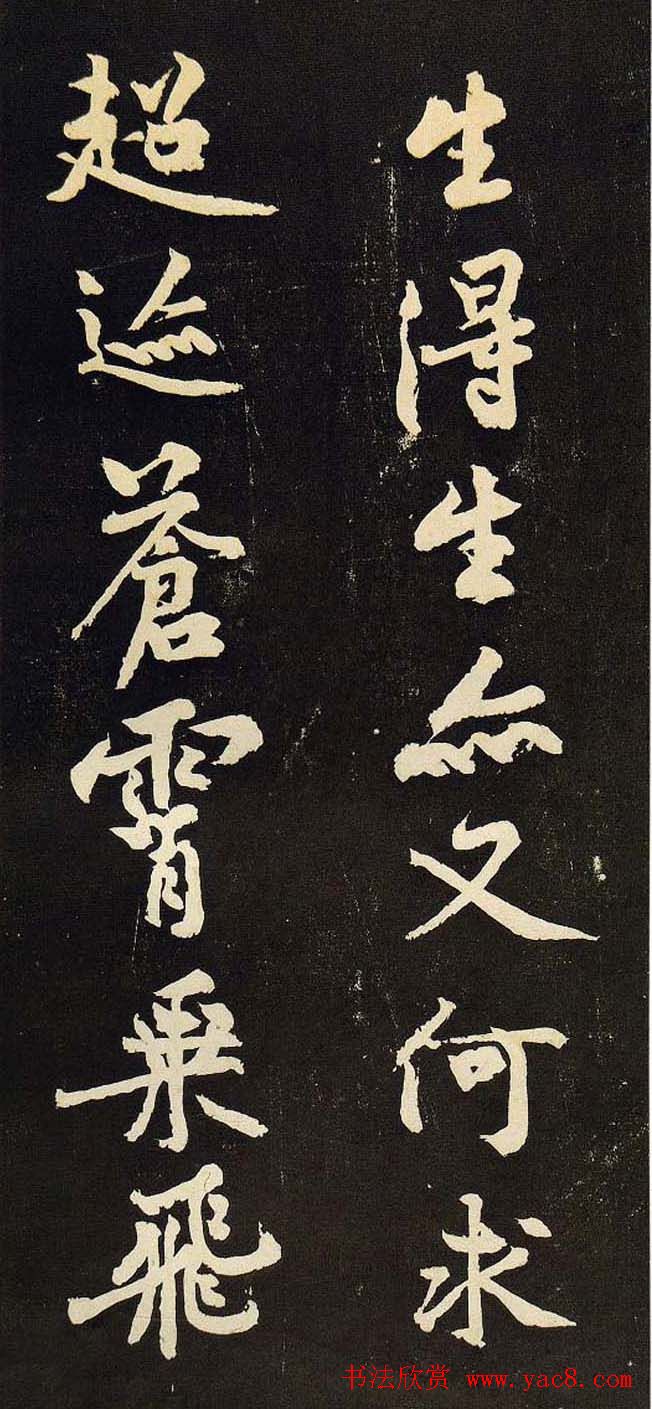 生得生亦又何求
超迹蒼霄乘飛
书法欣赏 www.yac8.com